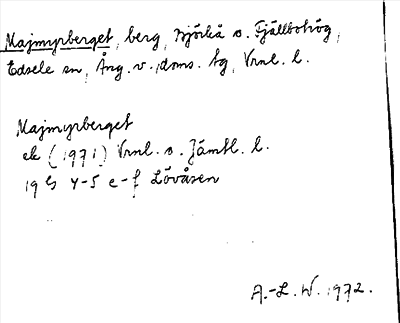 Majmyrberget, berg, Björkå o. Fjällbohög,
Edsele sn, Ång. v. doms. tg, Vrnl. l.
Majmyrberget
ek (1971) Vrnl. o. Jämtl. l.
19 G 4-5 e-f Lövåsen
A.-L. W. 1972.